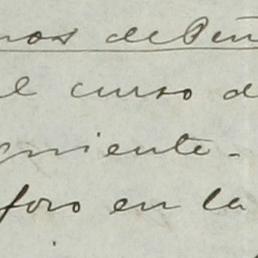 nos de Peñ
el curso d
guiente.
foro en la